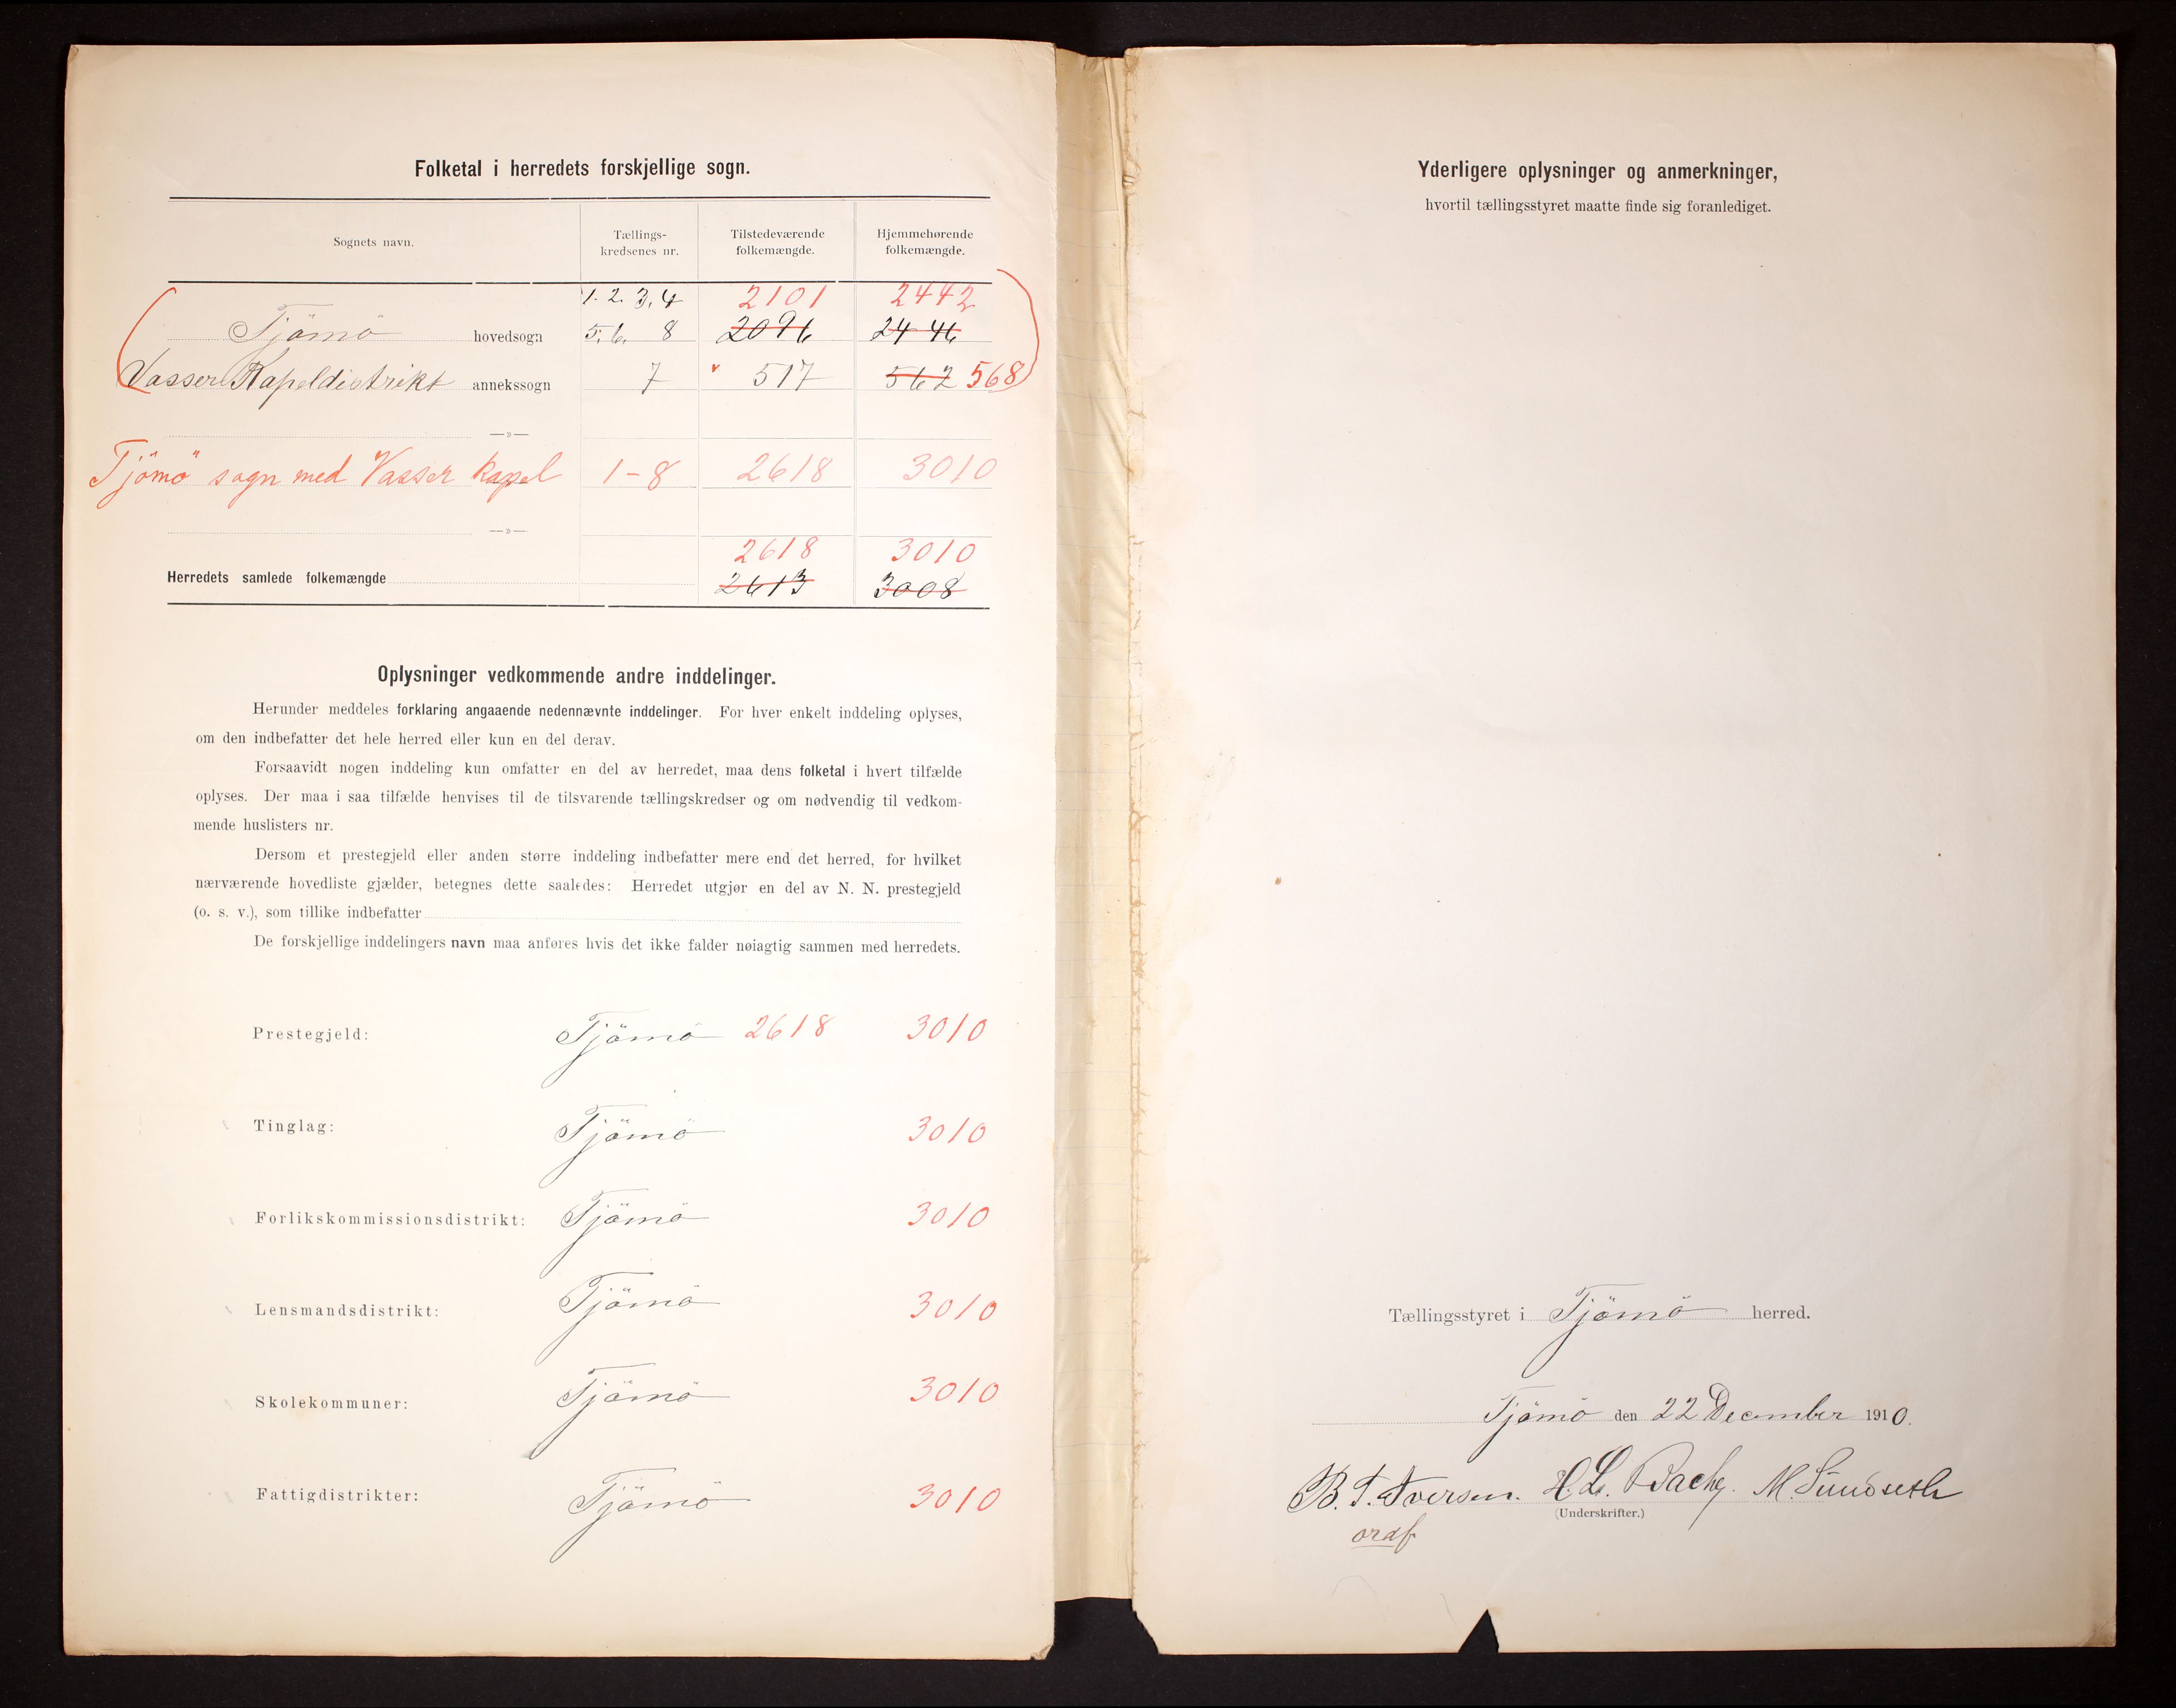 Folketal i herredets forskjellige sogn.
Sognets navn. Tællings-kredsenes nr. Tilstedeværende folkemængde. Hjemmehørende folkemængde.
1. 2. 3. 4 2101 2442
Tjömö hovedsogn 5. 6. 8 2096 2446
Vasser Kapeldistrikt annekssogn 7 v 517 562 568
—»—
Tjömö sogn med Vasser kapel 1-8 2618 3010
—»—
2618 3010
Herredets samlede folkemængde 2613 3008
Oplysninger vedkommende andre inddelinger.
Herunder meddeles forklaring angaaende nedennævnte inddelinger. For hver enkelt inddeling oplyses,
om den indbefatter det hele herred eller kun en del derav.
Forsaavidt nogen inddeling kun omfatter en del av herredet, maa dens folketal i hvert tilfælde
oplyses. Der maa i saa tilfælde henvises til de tilsvarende tællingskredser og om nødvendig til vedkom-
mende huslisters nr.
Dersom et prestegjeld eller anden større inddeling indbefatter mere end det herred, for hvilket
nærværende hovedliste gjælder, betegnes dette saaledes: Herredet utgjør en del av N. N. prestegjeld
(o. s. v.), som tillike indbefatter
De forskjellige inddelingers navn maa anføres hvis det ikke falder nøiagtig sammen med herredets.
Prestegjeld: Tjömö 2618 3010
Tinglag: Tjömö 3010
Forlikskommissionsdistrikt: Tjömö 3010
Lensmandsdistrikt: Tjömö 3010
Skolekommuner: Tjömö 3010
Fattigdistrikter: Tjömö 3010
Yderligere oplysninger og anmerkninger,
hvortil tællingsstyret maatte finde sig foranlediget.
Tællingsstyret i Tjömö herred.
Tjömö den 22 December 1910.
B. T. Iversen. H. L. Bache. M. Sundseth
(Underskrifter.)
ordf